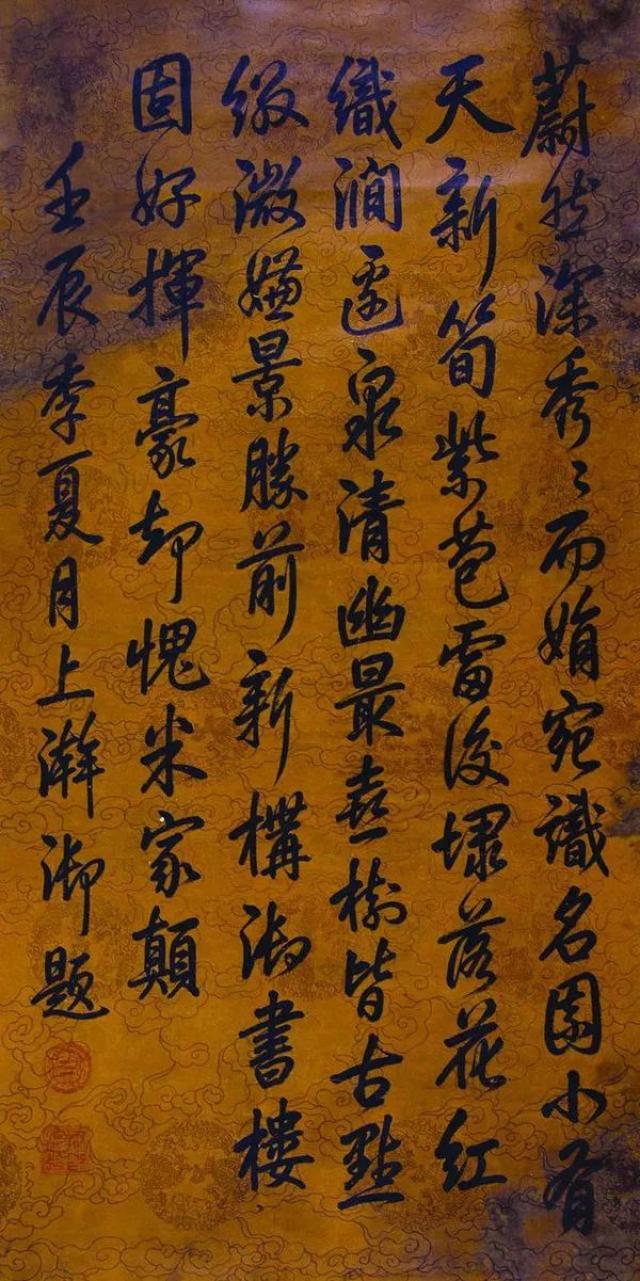 蔚然深秀〻而娟宛識名園小有
天新筍紫苞雷後埭落花紅
織澗邊泉清幽最喜樹皆古點
綴微嫌景勝前新構御書樓
固好揮豪却愧米家顛
壬辰季夏月上澣御題